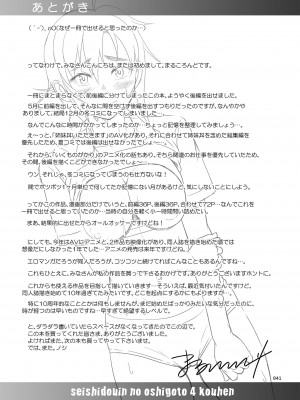 あとがき
(´-`).oO(なぜ一冊で出せると思ったのか…)
ってなわけで、みなさんこんにちは、または初めまして、まるころんどです。
一冊にまとまらなくて、前後編に分けてしまったこの本、ようやく後編を出せました。
5月に前編を出して、そんなに間を空けず後編を出すつもりだったのですが、なんやかや
ありまして、結局12月の冬コミになってしまいました…
なんでこんなに時間がかかってしまったのか…ちょっと記憶を整理してみましょう…
え〜っと、「姉妹丼いただきます」のAV化があり、それに合わせて姉妹丼を含めた総集編を
優先したため、夏コミでは後編は出せなかったでしょ…
それから、「いくものがかり」のアニメ化の話もあり、そちら関連のお仕事を優先していたため、
その間、後編を描くことができなかったでしょ〜…
ウン、それじゃ、冬コミになってしまうのも仕方ないな！
間でポツポツ1ヶ月単位で何してたか記憶にない月があるけど、気にしないことにしよう。
って この後編、漫画部分だけでいうと、前編36P、後編36P、合わせて72P…なんでこれを
一冊で出せると思っていたのか…当時の自分を軽く小一時間問い詰めたい。
まぁ、結果的に出せたからオールオッケーですけどね！
にしても、今年はAVにアニメと、2作品も映像化があり、同人誌を描き始めた頃では
想像だにしなかった1年でした…アニメの発売は来年ですけど！
エロマンガだろうが同人だろうが、コツコツと続けてればこんなこともあるんですね。
これもひとえに、みなさんが私の作品を買って下さるおかげです、ありがとうございますホントに。
これからも使える作品を目指して描いていきます…そういえば、最近気付いたんですけど、
同人描き始めて10年過ぎてたみたいです、どこを起点にするかにもよりますか…
特に10周年的なこととかは何もしませんが、まだ始めたばっかりみたいな気分だったのに、
時が経つのは早いものですね…早すぎて絶望するレベルで。
と、ダラダラ書いていたらスペースがなくなってきたのでこの辺で。
この本を買ってくれた皆さま、ありがとうございました。
よければまた、次の本も買ってやって下さい…
では、また。ノシ
041
seishidouin no oshigoto 4 kouhen